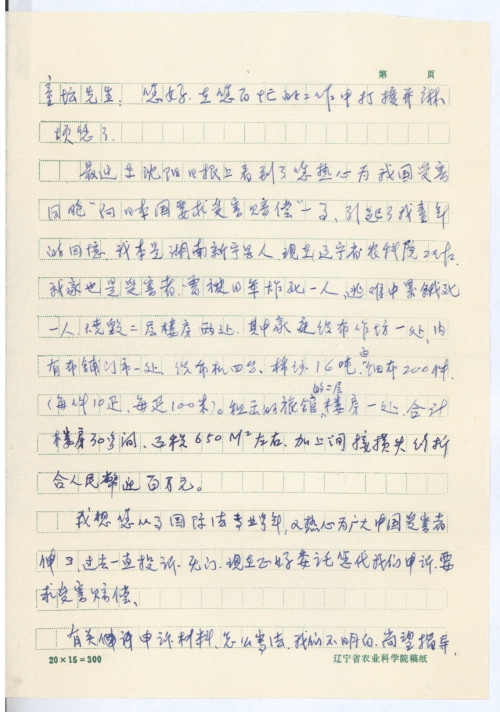 第 页
童坛先生：您好，在您百忙的工作中打搅并麻
烦您了。
最近在沈阳日报上看到了您热心为我国受害
同胞“向日本国要求受害赔偿”一事，引起了我童年
的回忆，我本是湖南新宁县人，现在辽宁省农科院工作。
我家也是受害者，曾被日军炸死一人，逃难中累饿死
一人，烧毁二层楼房两处，其中家庭织布作坊一处，内
有布铺门市一处，织布机四台、棉纱16吨、白细布200件，
（每件10疋，每疋100米）。租出的旅馆的二层楼房一处，合计
楼房30多间，面积650M²左右，加上间接损失约折
合人民币近百万元。
我想您从事国际法专业多年，又热心为广大中国受害者
伸冤，过去一直投诉无门，现在正好委托您代我们申诉，要
求受害赔偿。
有关申诉材料，怎么写法，我们不明白，尚望指导，
20×15=300 辽宁省农业科学院稿纸